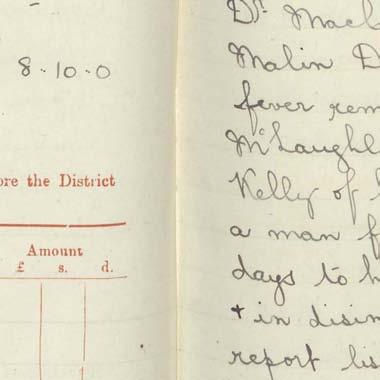 8.10.0
ore the District
Amount
£ s. d.
Dr. Macl
Malin D
fever rem
McLaughl
Kelly of
a man f
days to h
+ in disin
report lis